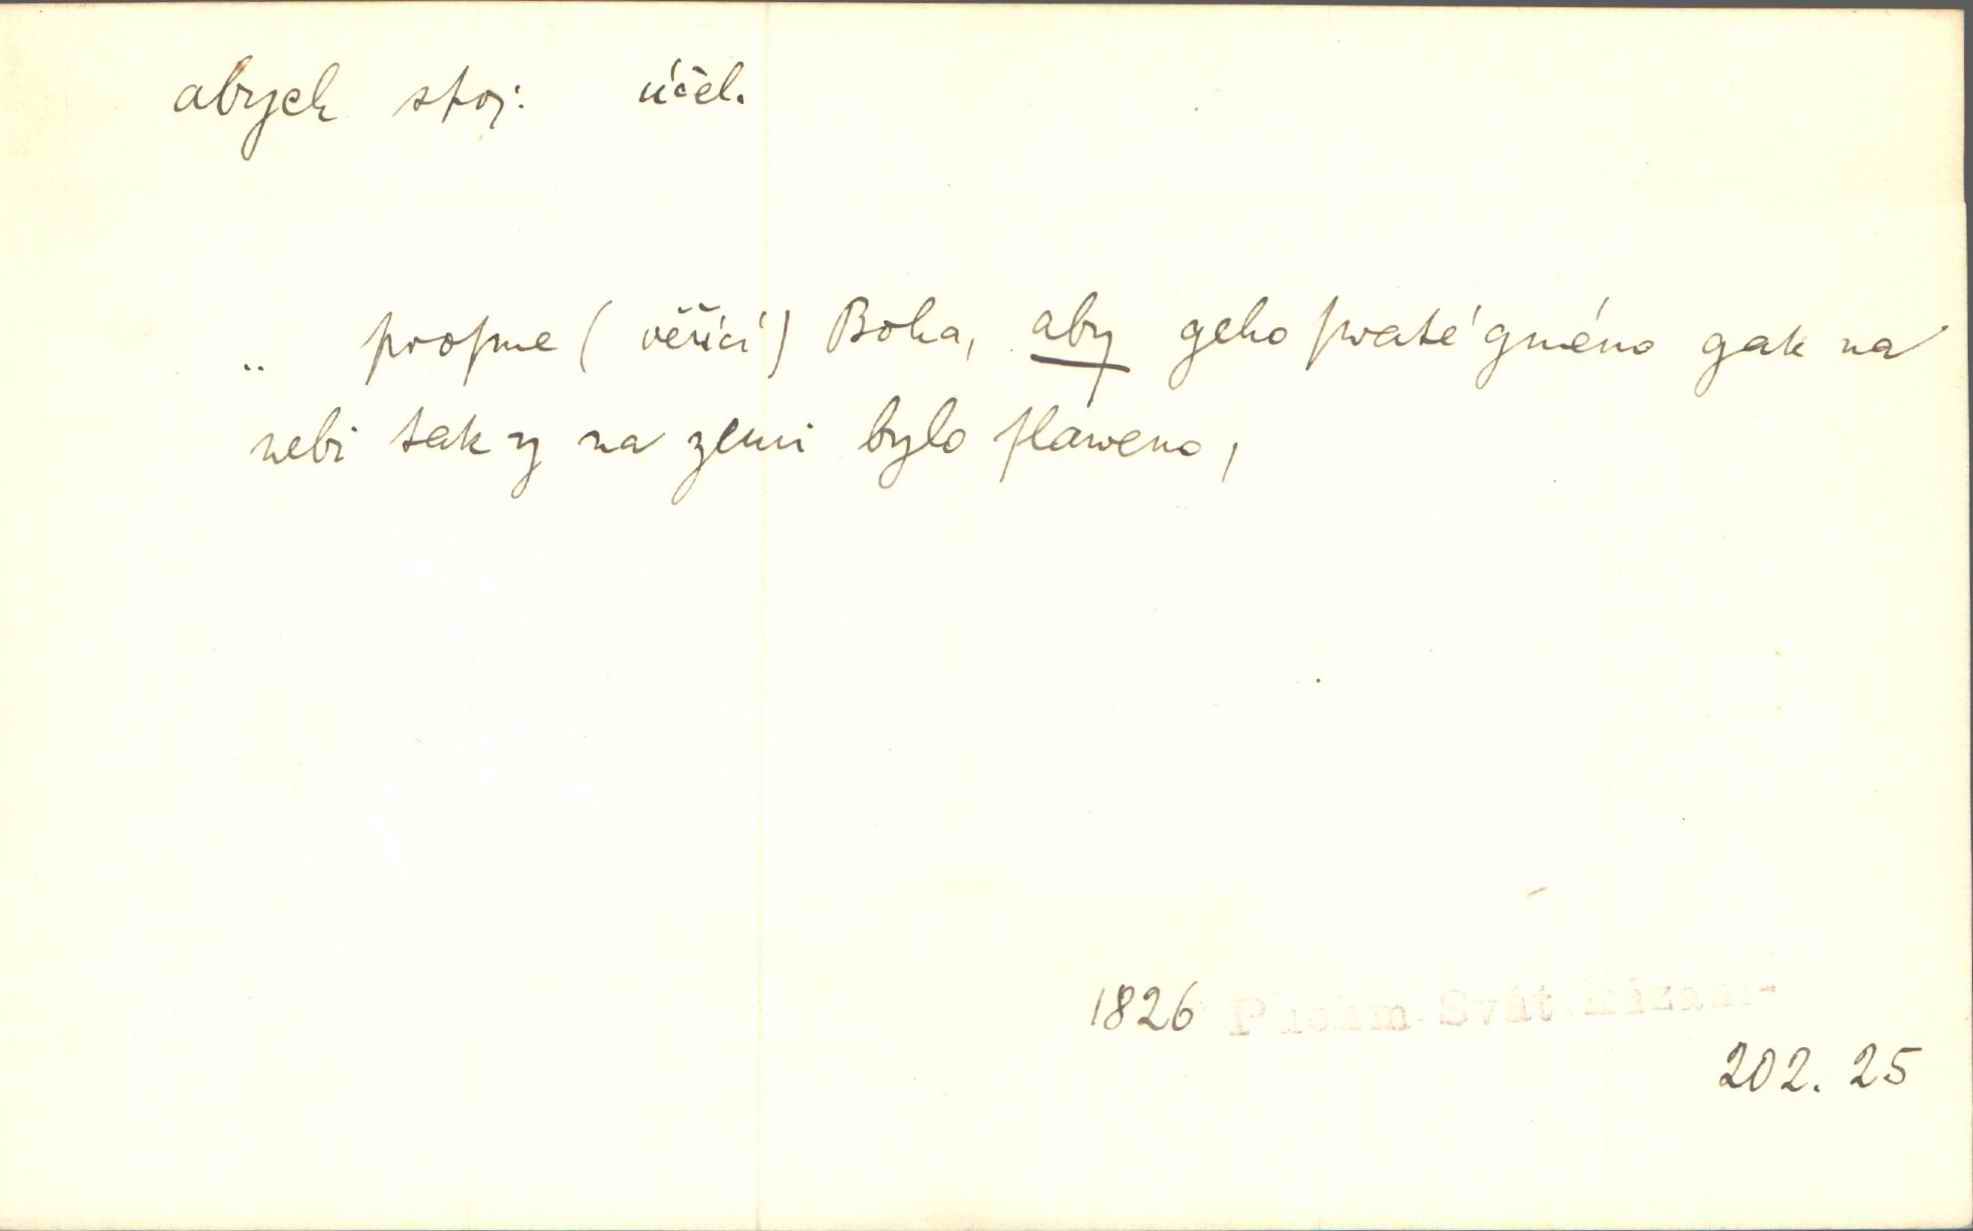 abych spoj. účel.
.. proſme ( věřící ) Boha, aby geho ſwaté gméno gak na
nebi tak y na zemi bylo ſláweno,
1826 Plohm Svát kázan-
202. 25